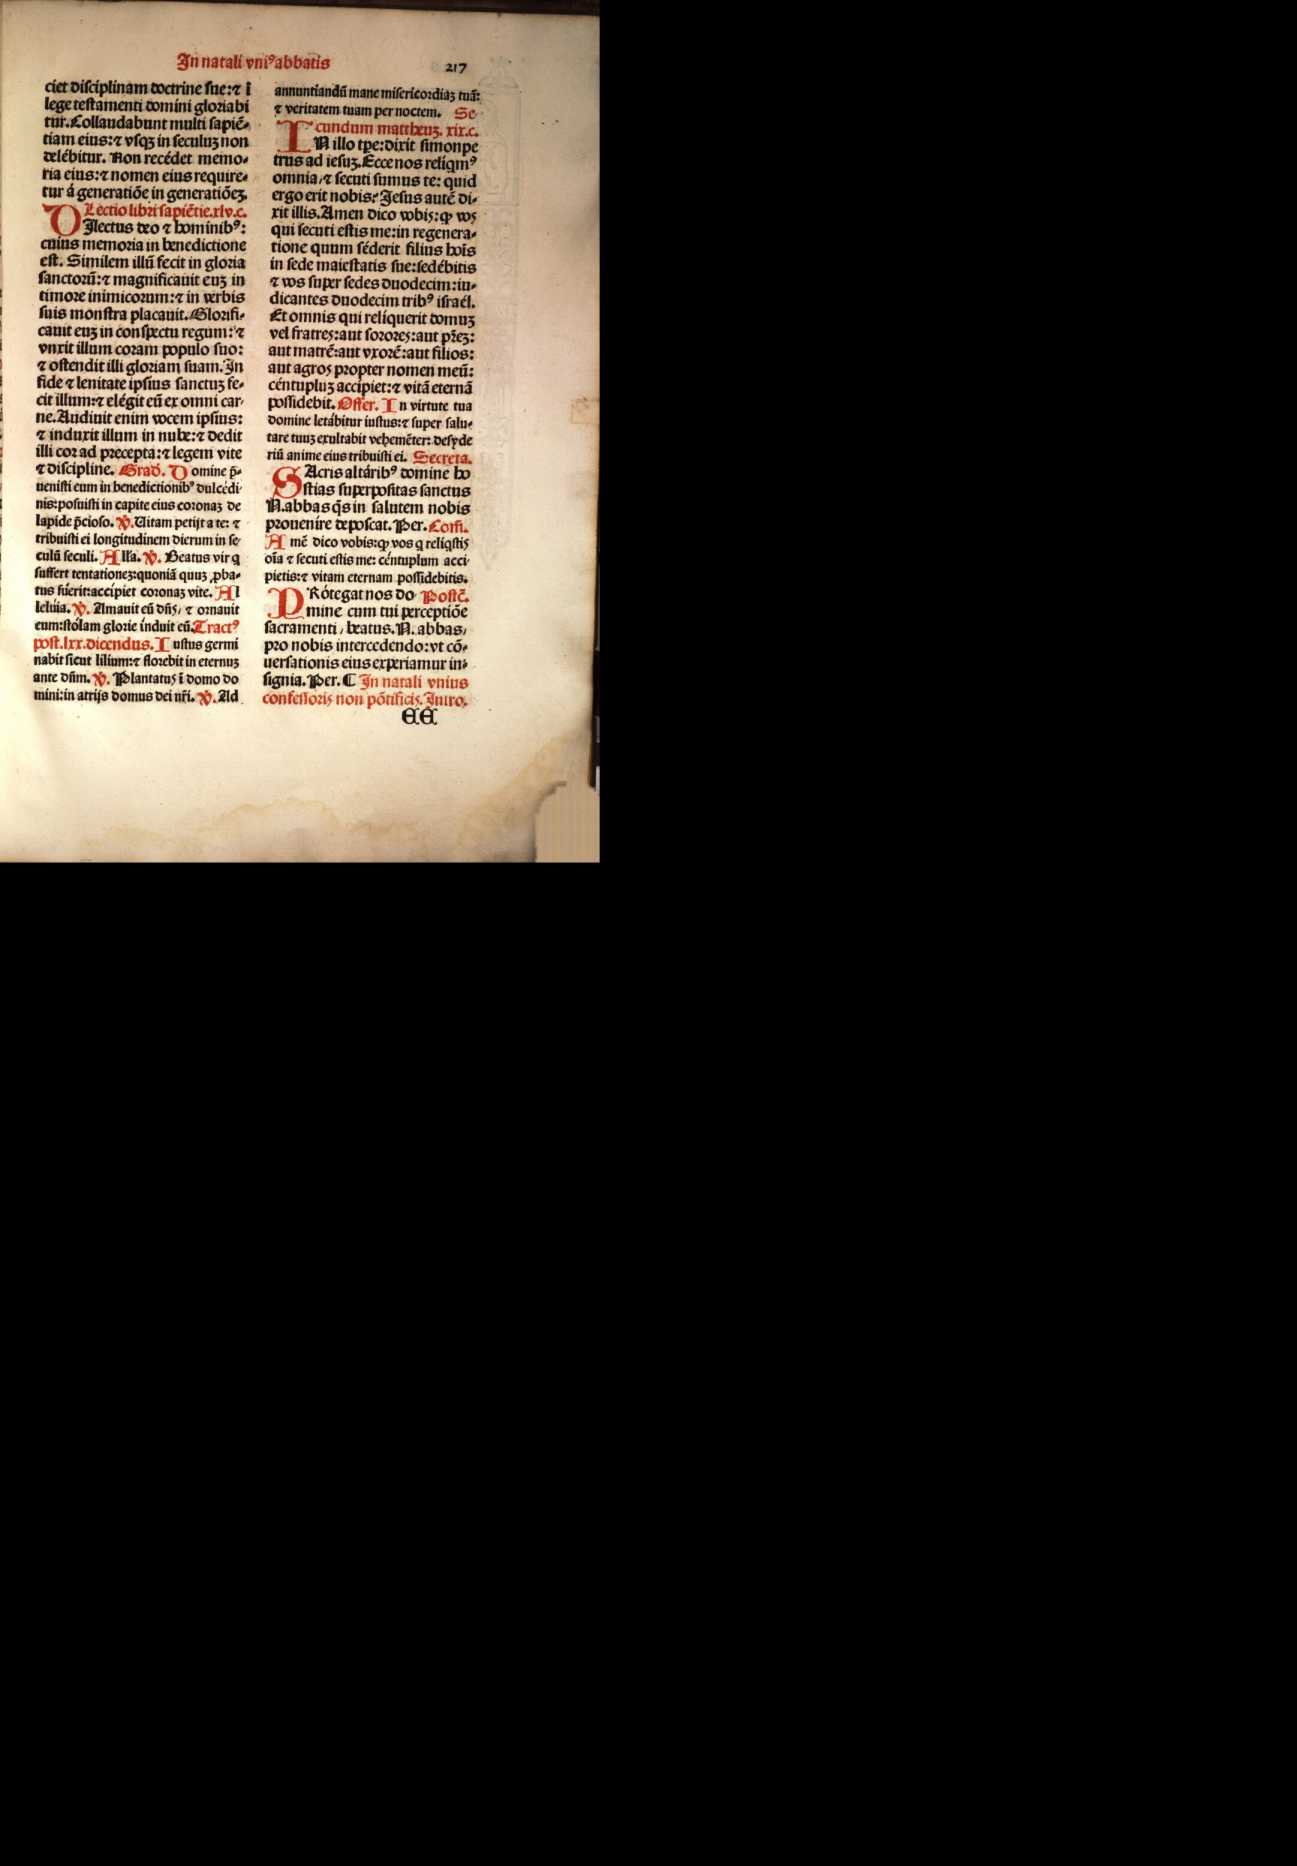 In natali vniꝰ abbatis
217
ciet disciplinam doctrine sue: ⁊ ĩ
lege testamenti domini gloriabi
tur. Collaudabunt multi sapiẽ-
tiam eius: ⁊ vsqꝫ in seculuꝫ non
delébitur. Non recédet memo-
ria eius: ⁊ nomen eius require-
tur á generatiõe in generatiõeꝫ.
Lectio libri sapiẽtie. xlv. c.
DIlectus deo ⁊ hominibꝰ:
cuius memoria in benedictione
est. Similem illũ fecit in gloria
sanctorũ: ⁊ magnificauit euꝫ in
timore inimicorum: ⁊ in verbis
suis monstra placauit. Glorifi-
cauit euꝫ in conspectu regum: ⁊
vnxit illum coram populo suo:
⁊ ostendit illi gloriam suam. In
fide ⁊ lenitate ipsius sanctuꝫ fe-
cit illum: ⁊ elégit eũ ex omni car-
ne. Audiuit enim vocem ipsius:
⁊ induxit illum in nube: ⁊ dedit
illi cor ad precepta: ⁊ legem vite
⁊ discipline. Grad̃. Domine p̃-
uenisti eum in benedictionibꝰ dulcedi
nis: posuisti in capite eius coronaꝫ de
lapide p̃cioso. ℣. Uitam petijt a te: ⁊
tribuisti ei longitudinem dierum in se
culũ seculi. All'a. ℣. Beatus vir q
suffert tentationeꝫ: quoniã quuꝫ ꝓba-
tus fúerit: accípiet coronaꝫ vite. Al
lelúia. ℣. Amauit eũ dñs, ⁊ ornauit
eum: stólam glorie índuit eũ. Tractꝰ
post. lxx. dicendus. Iustus germi
nabit sicut lilium: ⁊ florebit in eternuꝫ
ante dñm. ℣. Plantatus ĩ domo do
mini: in atrijs domus dei nr̃i. ℣. Ad
annuntiandũ mane misericordiaꝫ tuã:
⁊ veritatem tuam per noctem. Se
cundum mattheuꝫ. xix. c.
IN illo tꝑe: dixit simon pe
trus ad iesuꝫ. Ecce nos reliqmꝰ
omnia, ⁊ secuti sumus te: quid
ergo erit nobis? Jesus autẽ di-
xit illis. Amen dico vobis: ꝙ vos
qui secuti estis me: in regenera-
tione quum séderit filius hoĩs
in sede maiestatis sue: sedébitis
⁊ vos super sedes duodecim: iu-
dicantes duodecim tribꝰ israél.
Et omnis qui relíquerit domuꝫ
vel fratres: aut sorores: aut pr̃eꝫ:
aut matrẽ: aut vxorẽ: aut filios:
aut agros propter nomen meũ:
céntupluꝫ accípiet: ⁊ vitã eternã
possidebit. Offer. In virtute tua
domine letábitur iustus: ⁊ super salu-
tare tuuꝫ exultabit vehemẽter: desyde
riũ anime eius tribuisti ei. Secreta.
SAcris altáribꝰ domine ho
stias superpositas sanctus
N. abbas q̃s in salutem nobis
prouenire deposcat. Per. Com̃.
Amẽ dico vobis: ꝙ vos q reliqstis
oĩa ⁊ secuti estis me: céntuplum acci
pietis: ⁊ vitam eternam possidebitis.
PRótegat nos do- Postc̃.
mine cum tui perceptiõe
sacramenti, beatus. N. abbas,
pro nobis intercedendo: vt cõ-
uersationis eius experiamur in-
signia. Per. ¶ In natali vnius
confessoris non põtificis. Intro.
EE